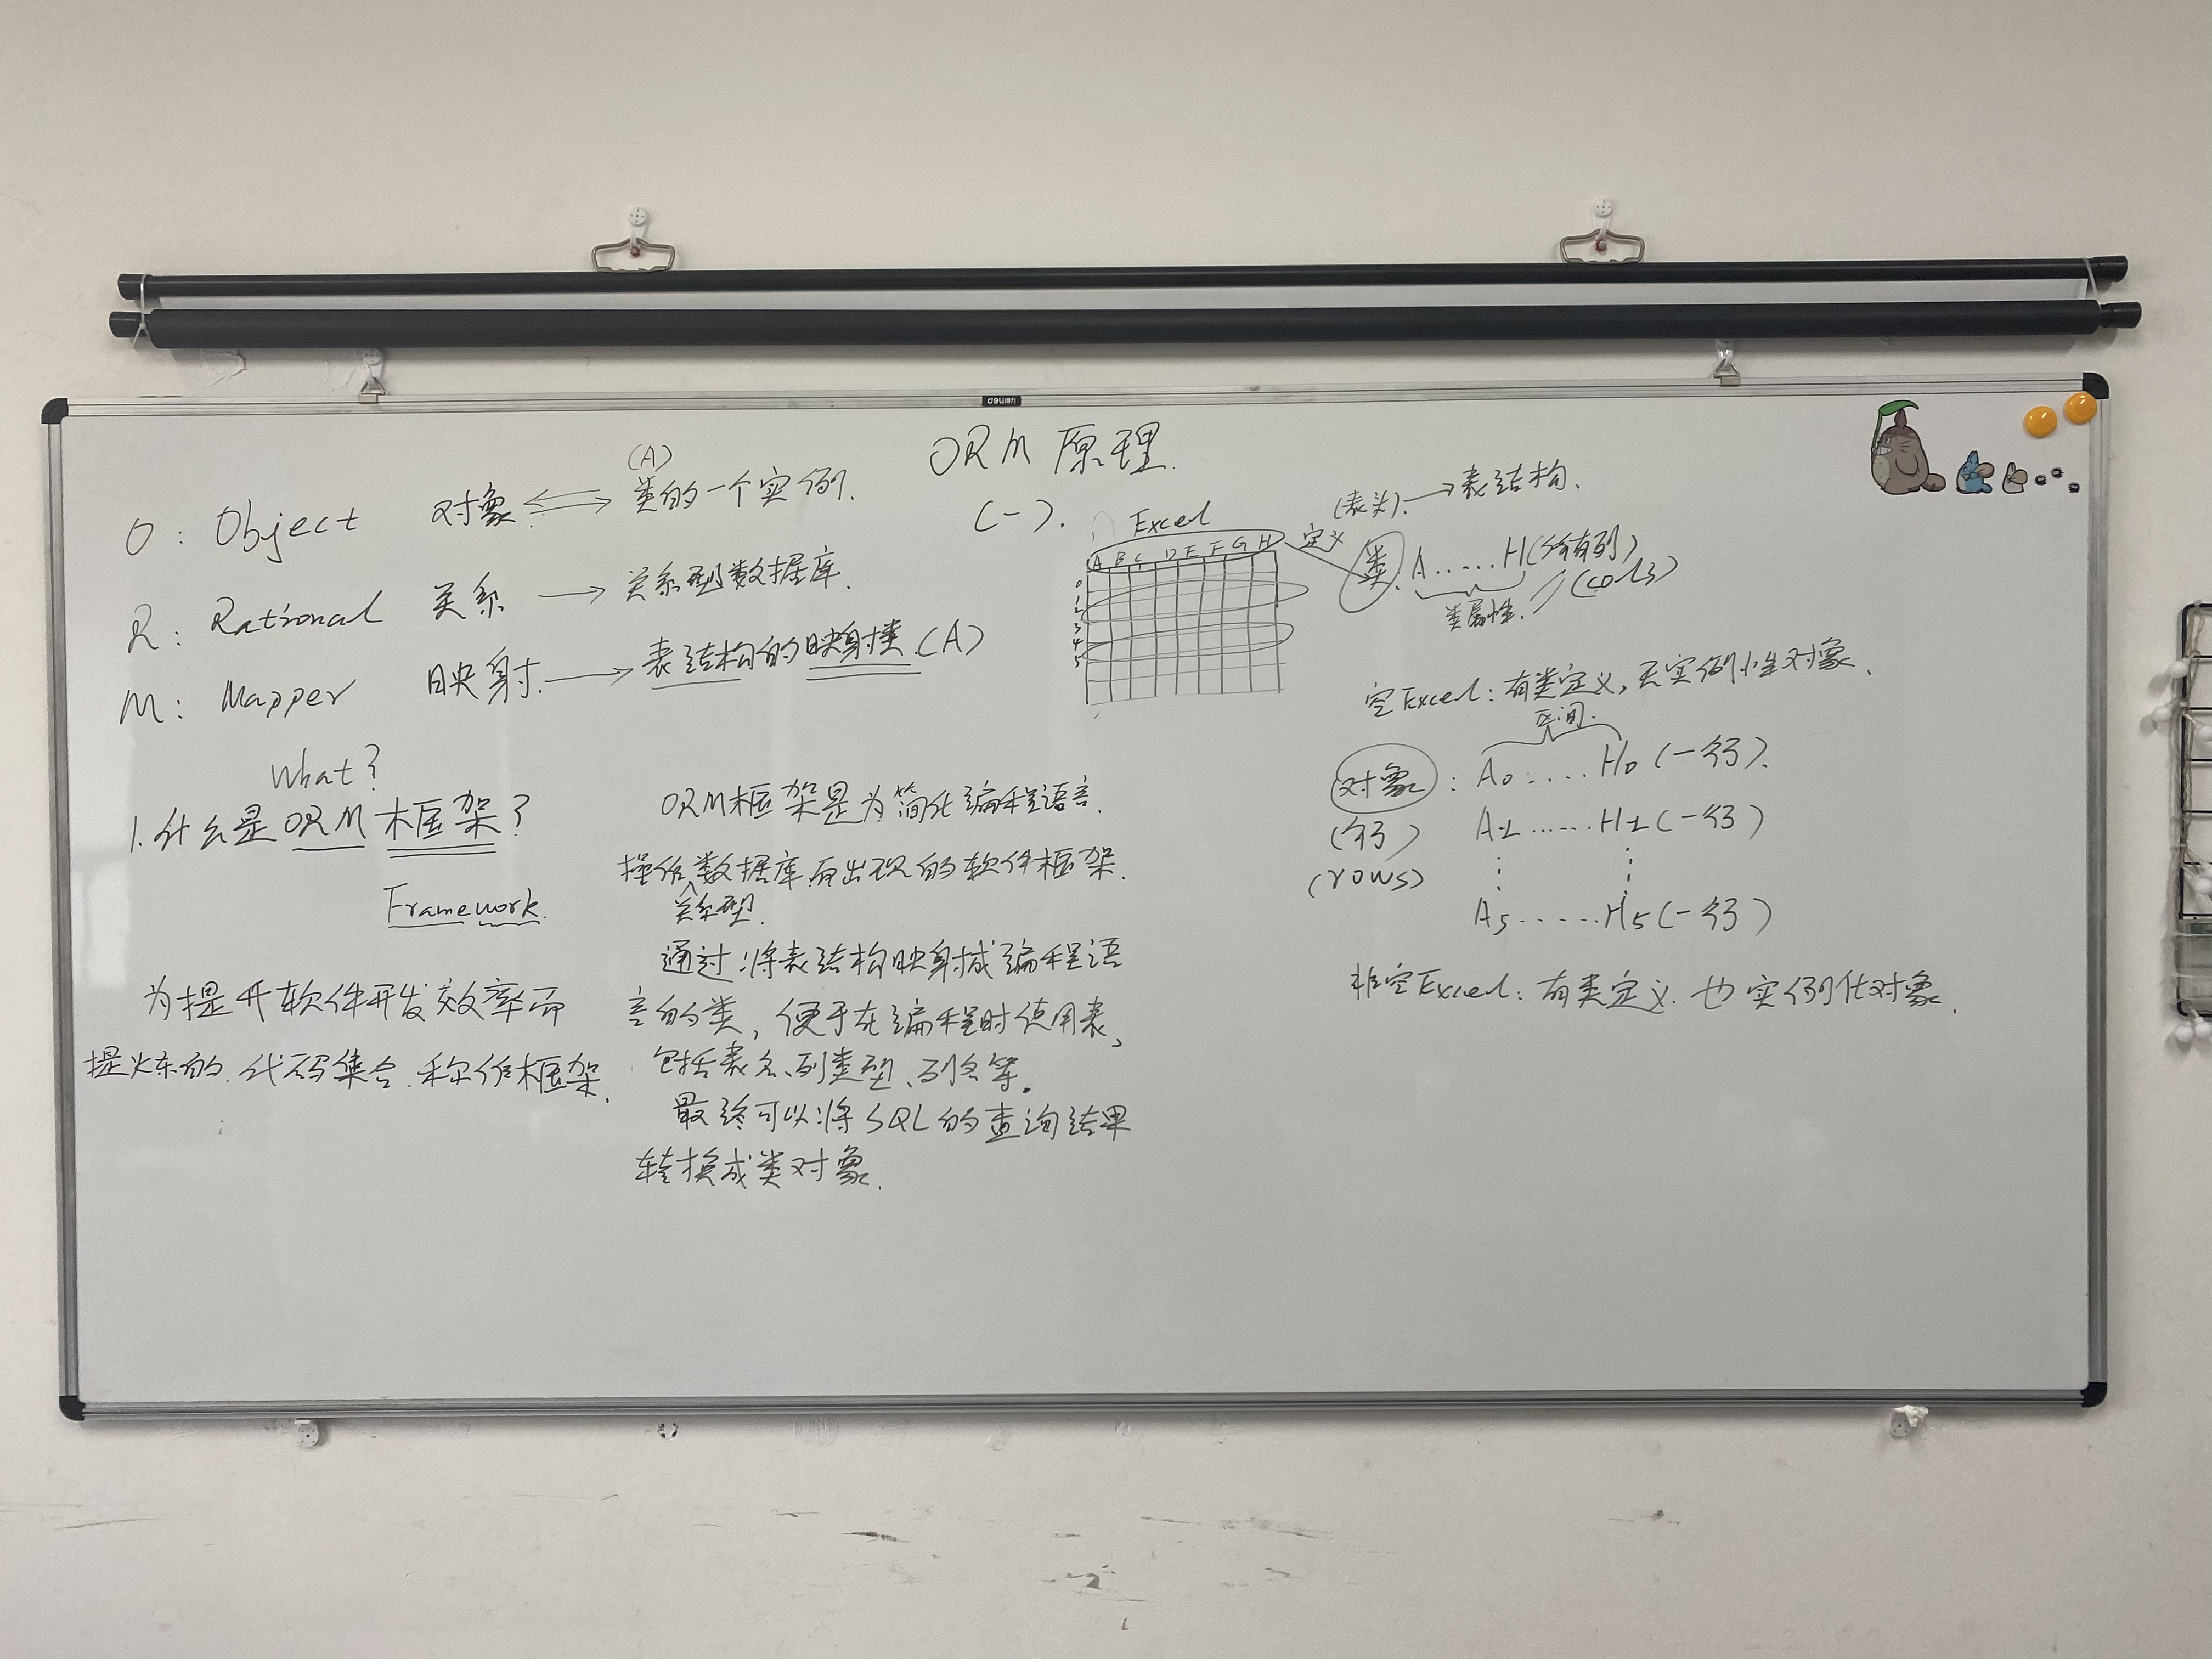 deli
ORM 原理.
(一).
(A)
O: Object 对象 类的一个实例.
R: Rational 关系 → 关系型数据库.
M: Mapper 映射. → 表结构的映射类(A)
What?
1. 什么是ORM框架?
Framework.
为提升软件开发效率而
提炼的代码集合.称作框架.
ORM框架是为简化编程语言.
操作数据库而出现的软件框架.
关系型.
通过将表结构映射成编程语
言的类,便于在编程时使用表,
包括表名、列类型、列名等.
最终可以将SQL的查询结果
转换成类对象.
Excel
A B C D E F G H
0
1
2
3
4
5
定义
(表头). → 表结构.
类. A......H(所有列)
类属性. (cols)
空Excel: 有类定义,无实例化对象.
区间.
对象: A0.....H0(一行).
(行) A1......H1(一行)
(rows)
A5......H5(一行)
非空Excel: 有类定义.也实例化对象.